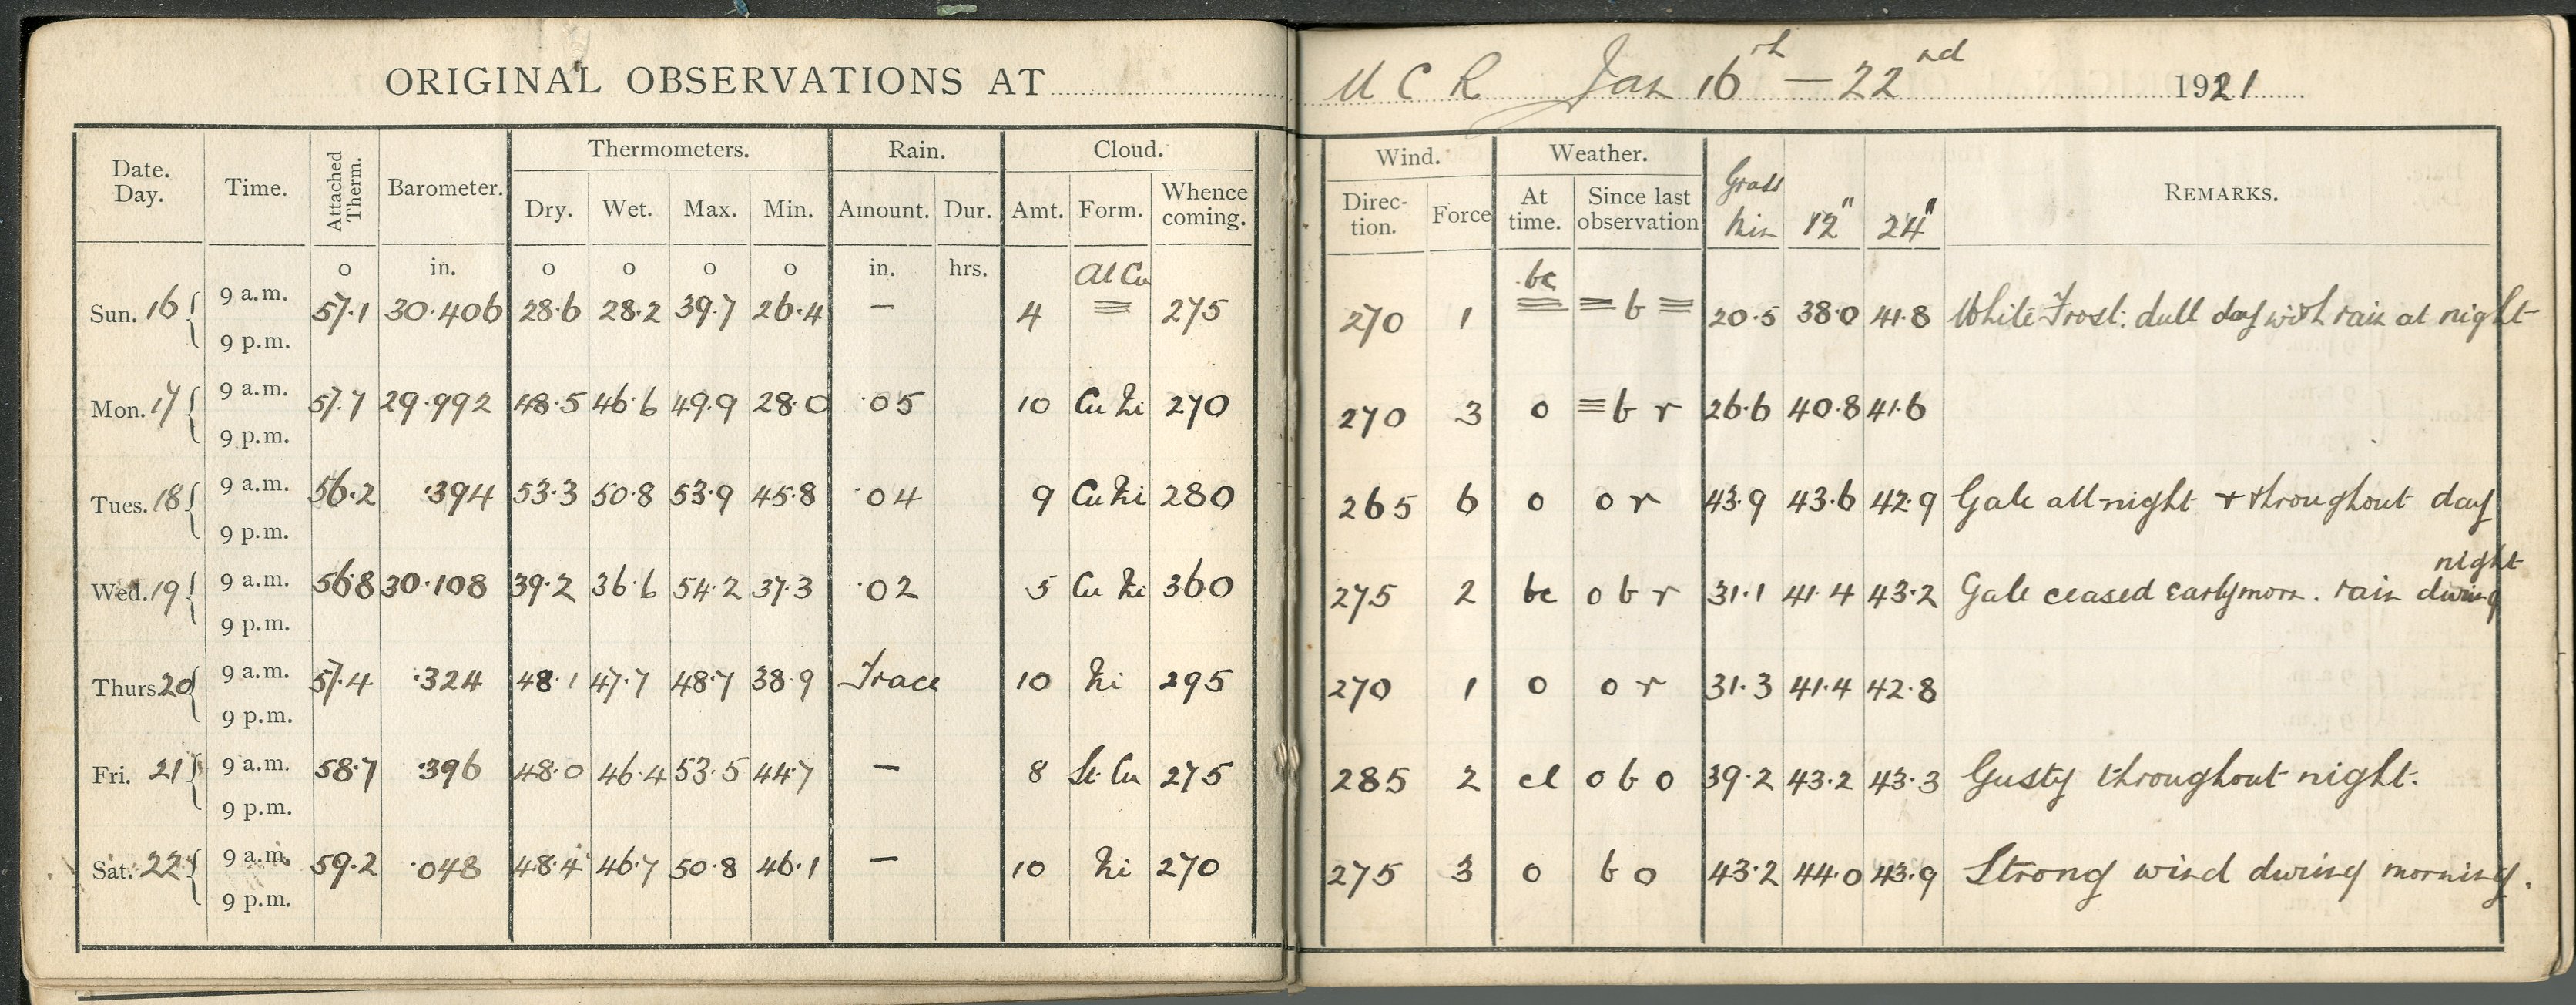 ORIGINAL OBSERVATIONS AT U C R Jan 16th — 22nd 1921
Date. Day. Time. Attached Therm. Barometer. Thermometers. Rain. Cloud. Wind. Weather. Grass Min 12" 24" REMARKS.
Dry. Wet. Max. Min. Amount. Dur. Amt. Form. Whence coming. Direction. Force At time. Since last observation
o in. o o o o in. hrs.
Sun. 16 { 9 a.m. 57.1 30.406 28.6 28.2 39.7 26.4 — 4 Al Cu ≡ 275 270 1 bc ≡ = b ≡ 20.5 38.0 41.8 White Frost. dull day with rain at night
9 p.m.
Mon. 17 { 9 a.m. 57.7 29.992 48.5 46.6 49.9 28.0 .05 10 Cu Ni 270 270 3 o ≡ b r 26.6 40.8 41.6
9 p.m.
Tues. 18 { 9 a.m. 56.2 .394 53.3 50.8 53.9 45.8 .04 9 Cu Ni 280 265 6 o o r 43.9 43.6 42.9 Gale all night + throughout day
9 p.m.
Wed. 19 { 9 a.m. 56.8 30.108 39.2 36.6 54.2 37.3 .02 5 Cu Ni 360 275 2 bc o b r 31.1 41.4 43.2 Gale ceased early morn. rain during night
9 p.m.
Thurs. 20 { 9 a.m. 57.4 .324 48.1 47.7 48.7 38.9 Trace 10 Ni 295 270 1 o o r 31.3 41.4 42.8
9 p.m.
Fri. 21 { 9 a.m. 58.7 .396 48.0 46.4 53.5 44.7 — 8 St. Cu 275 285 2 cl o b o 39.2 43.2 43.3 Gusty throughout night.
9 p.m.
Sat. 22 { 9 a.m. 59.2 .048 48.4 46.7 50.8 46.1 — 10 Ni 270 275 3 o b o 43.2 44.0 43.9 Strong wind during morning.
9 p.m.